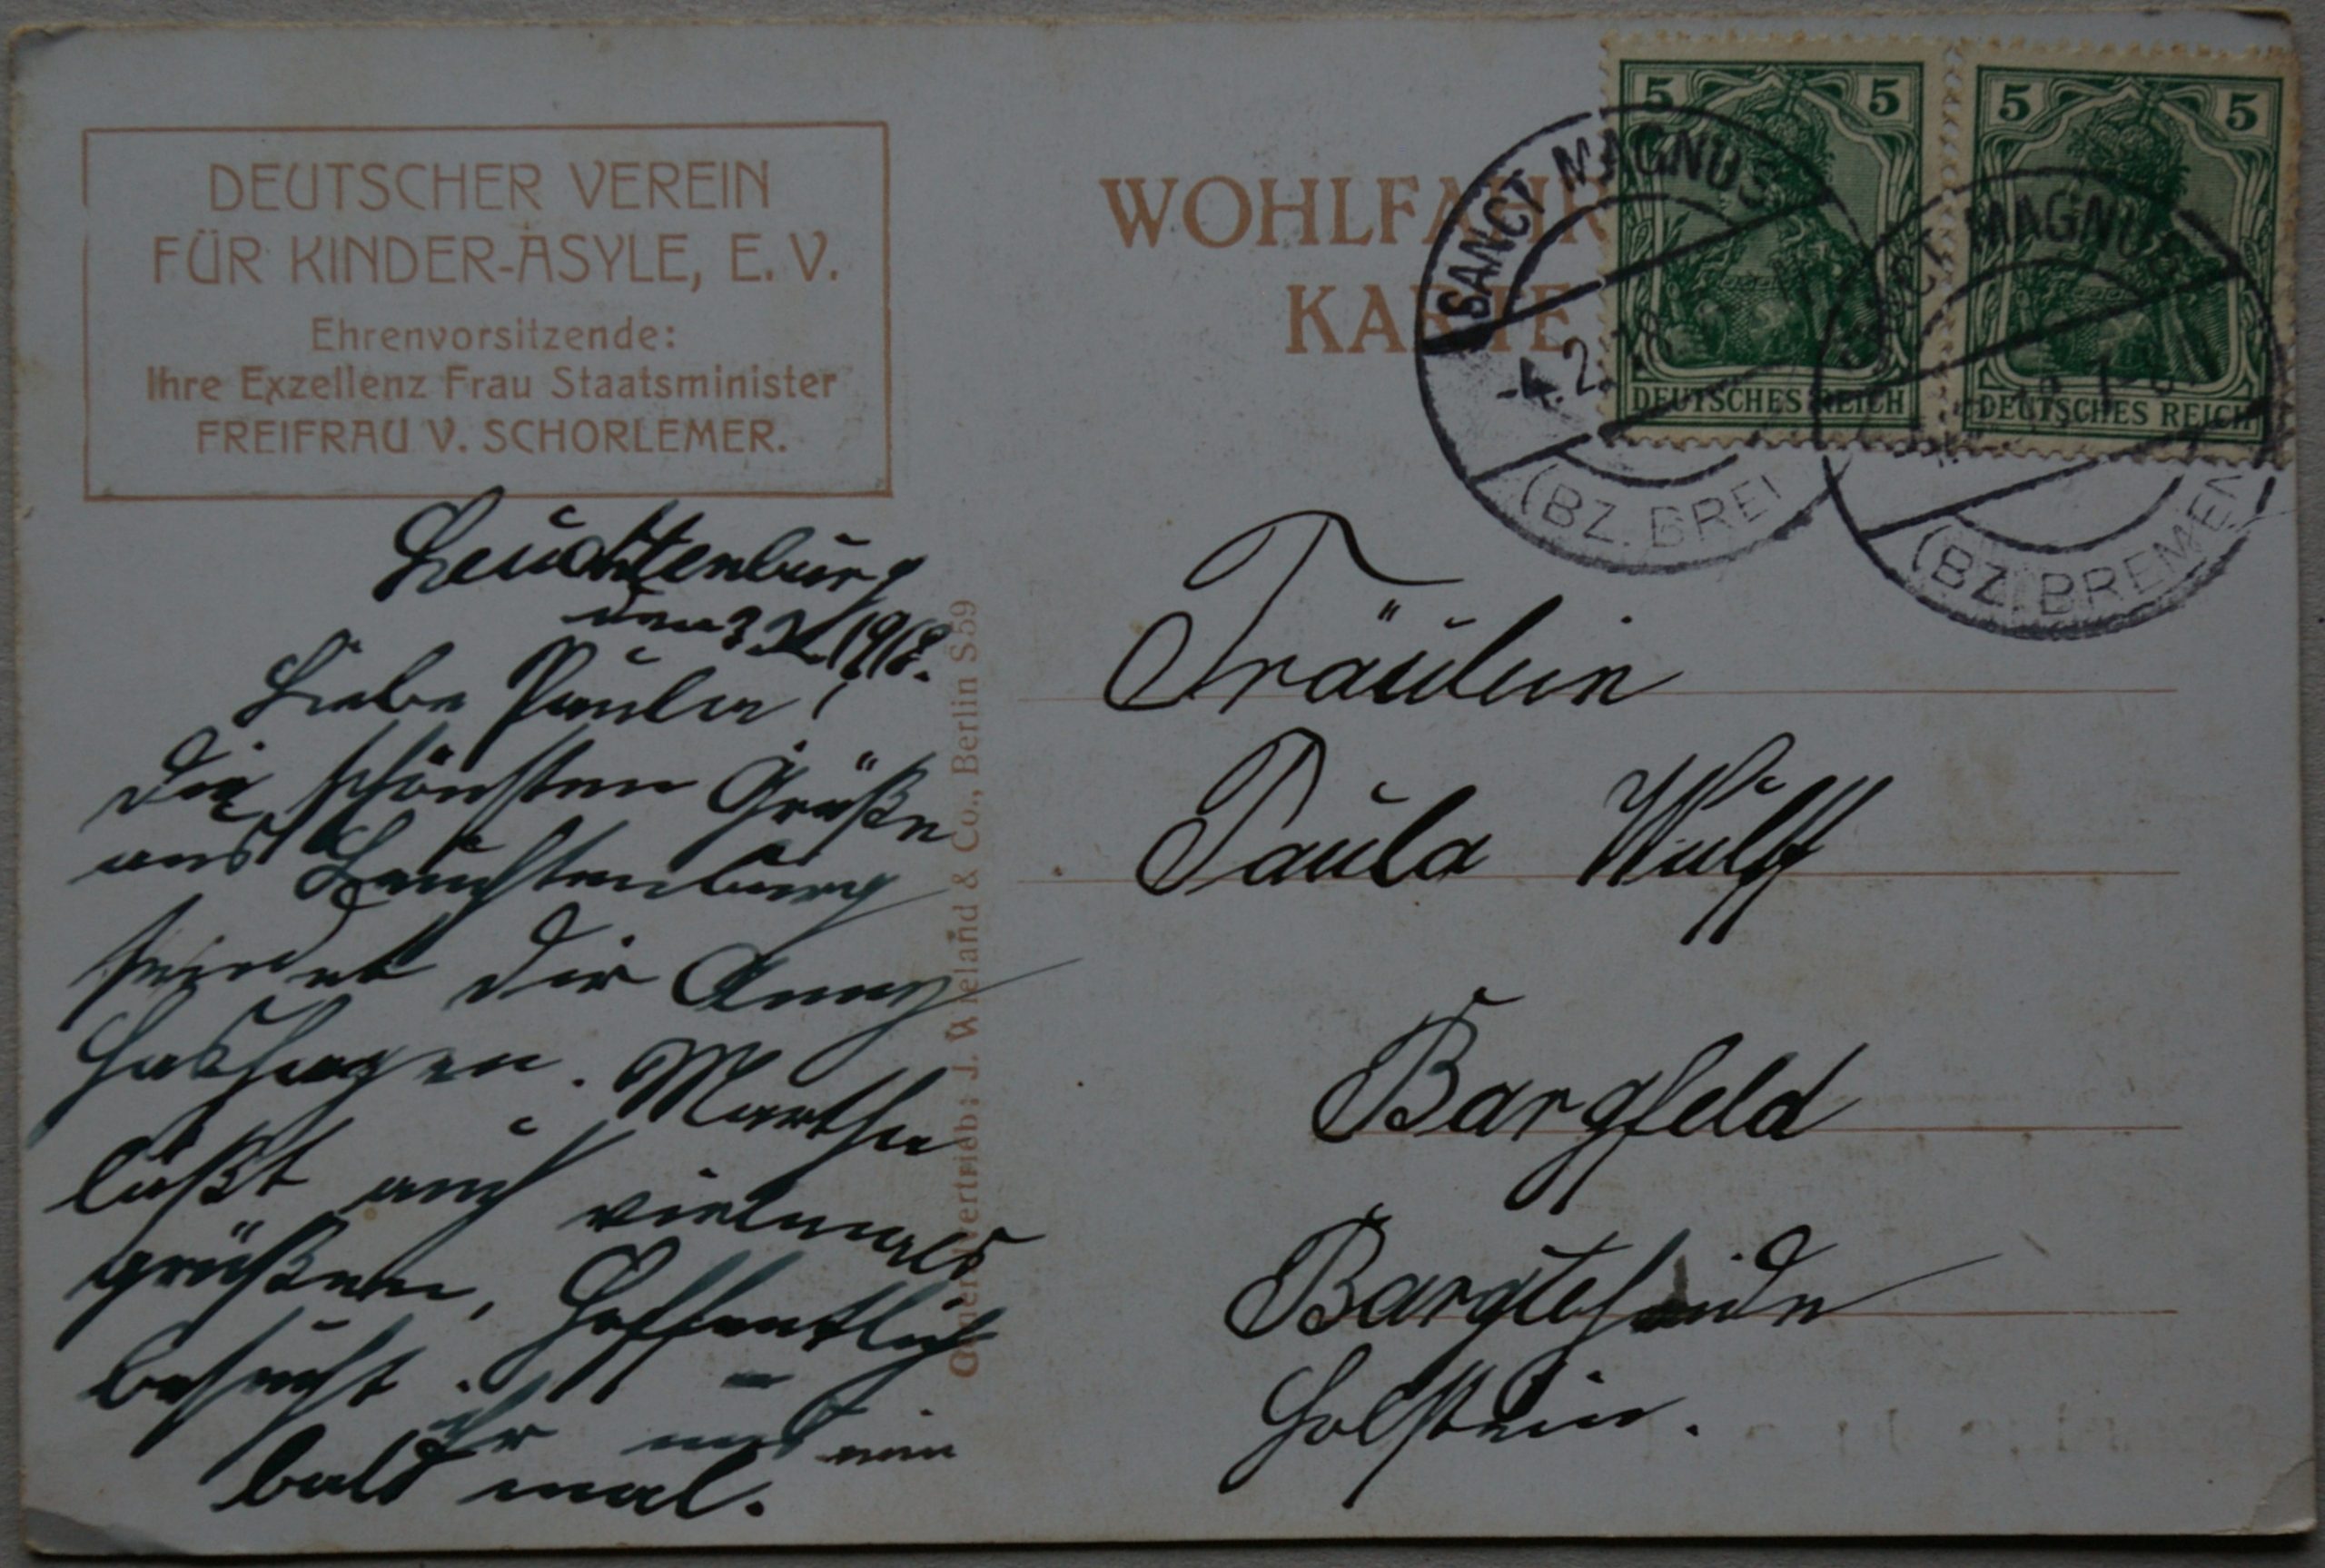 DEUTSCHER VEREIN
FÜR KINDER-ASYLE, E. V.
Ehrenvorsitzende:
Ihre Exzellenz Frau Staatsminister
FREIFRAU V. SCHORLEMER.
WOHLFAHR
KARTE
5 5
DEUTSCHES REICH
5 5
DEUTSCHES REICH
SANCT MAGNUS
-4.2.18
(BZ. BREM
SANCT MAGNUS
(BZ. BREMEN
Leuchtenburg
den 3.2.1918.
Liebe Paula!
Die schönsten Grüße
aus Leuchtenburg
sendet dir Anny
Hashagen. Martha
läßt auch vielmals
grüßen, Hoffentlich
besucht ihr uns nun
bald mal.
Generalvertrieb: J. Wieland & Co., Berlin S 59
Fräulein
Paula Wulff
Bargfeld
Bargteheide
Holstein.